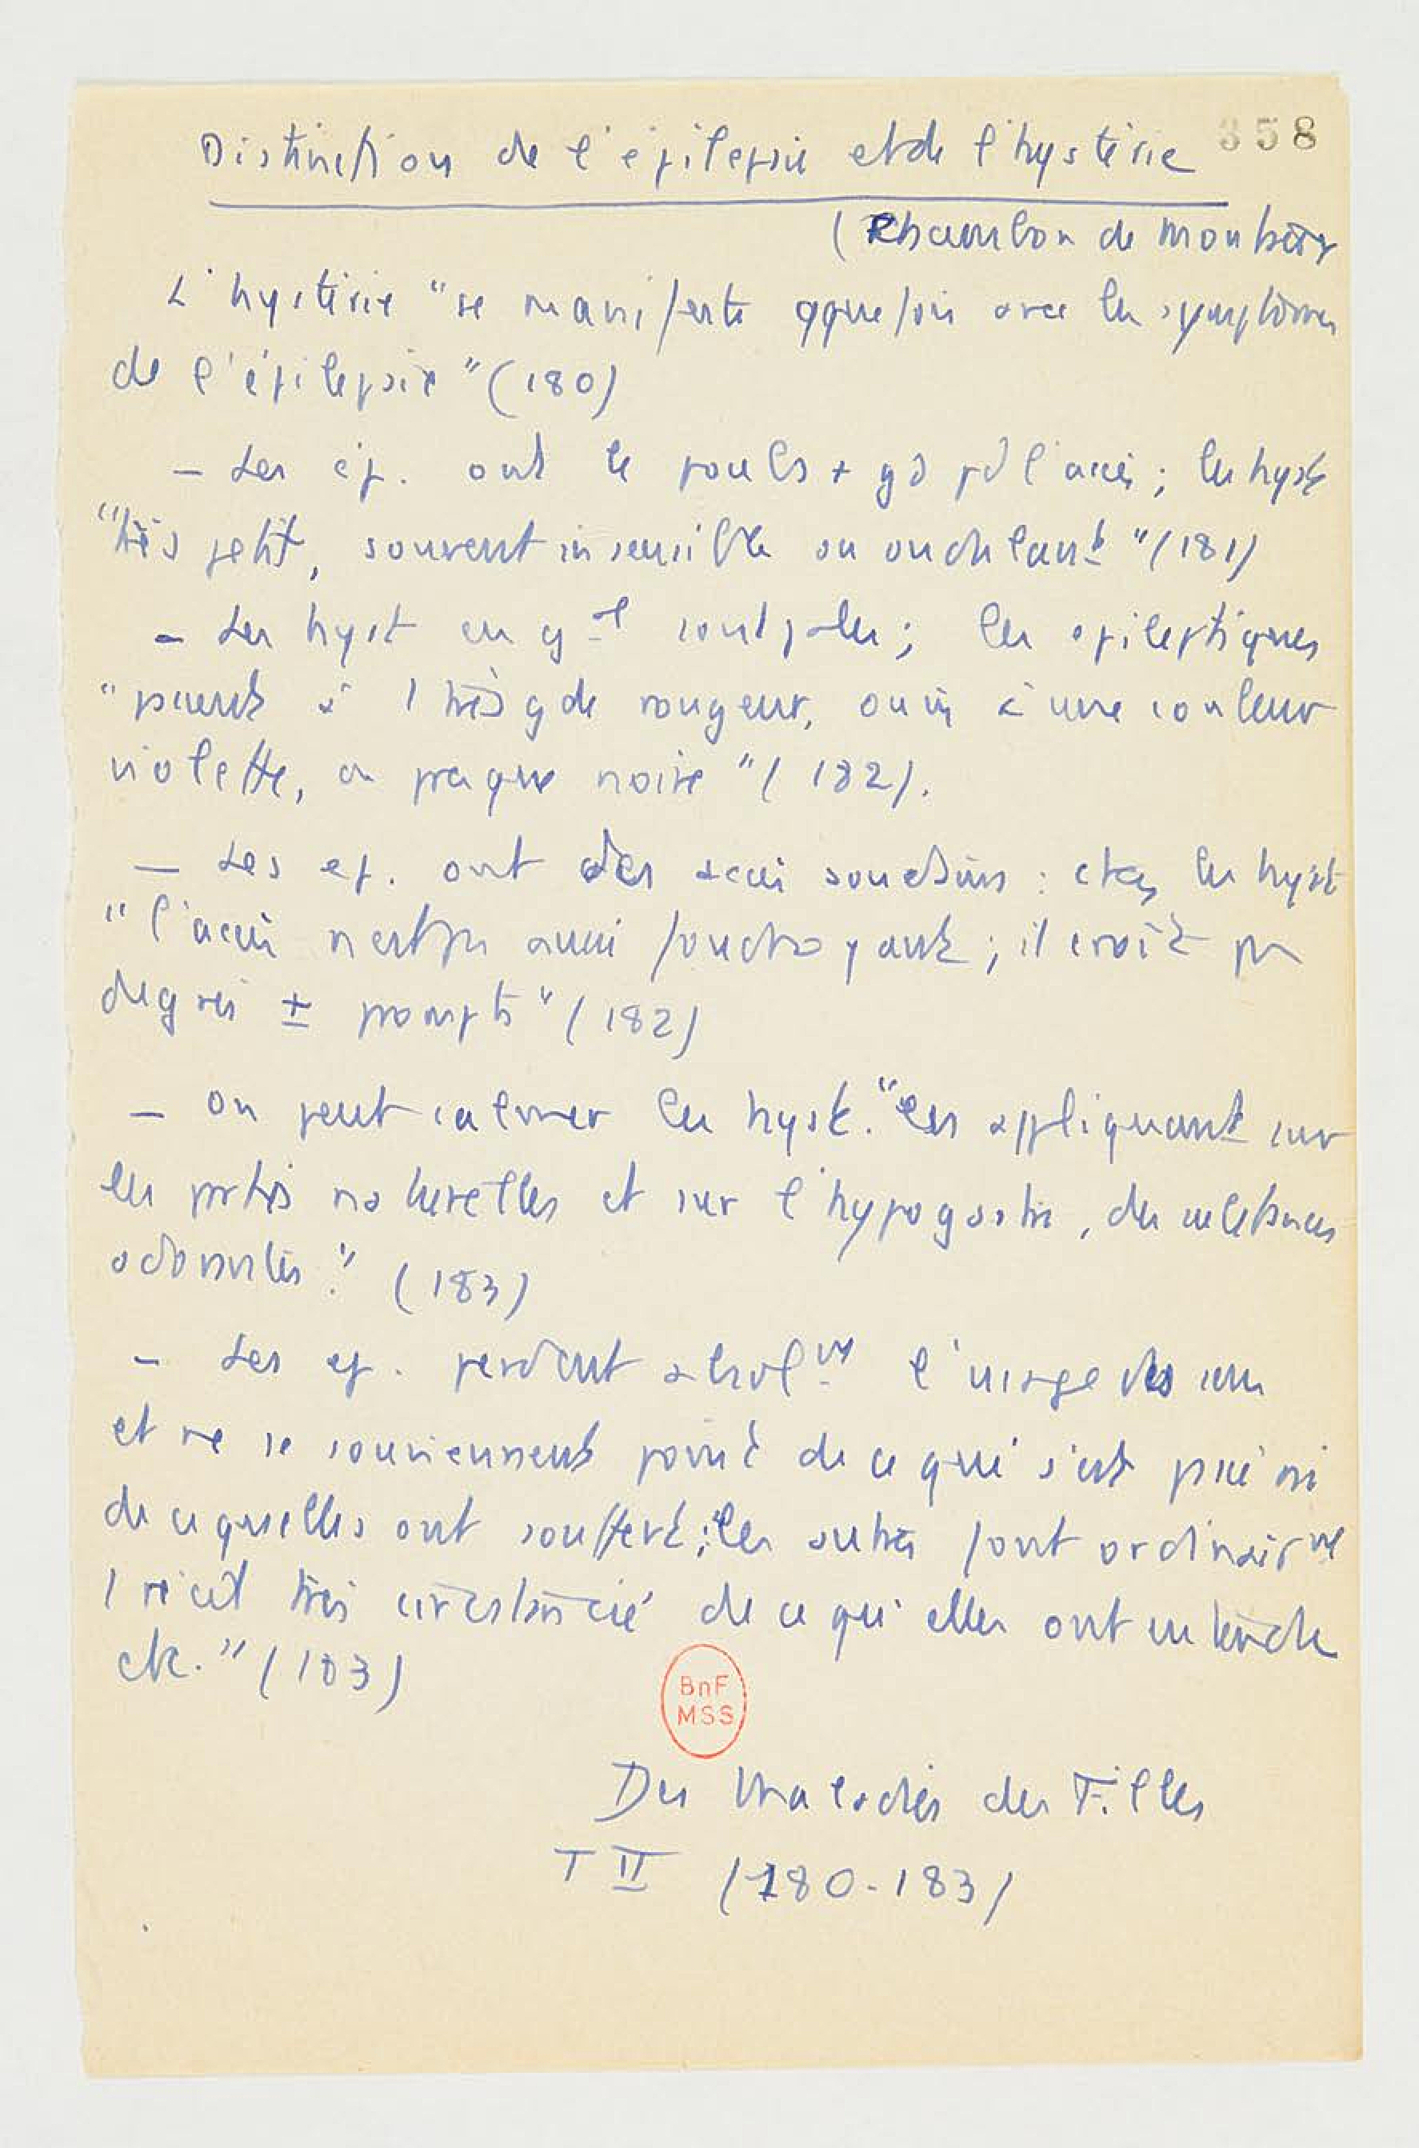 358
Distinction de l'épilepsie et de l'hystérie
(Chambon de Montaux
L'hystérie "se manifeste qquefois avec les symptômes
de l'épilepsie" (180)
– Les ép. ont le pouls + gd pd l'accès ; les hyst
"très petit, souvent insensible ou ondulant" (181)
– Les hyst en gal sont pâles ; les épileptiques
"passent à 1 très gde rougeur, ou à une couleur
violette, ou presque noire" (182).
– Les ep. ont des accès soudains : chez les hyst
"l'accès n'est pas aussi foudroyant ; il croît par
degrés ± prompts" (182)
– On peut calmer les hyst. "en appliquant sur
les parties naturelles et sur l'hypogastre, des substances
odorantes." (183)
– Les ep. perdent absolvt l'usage des sens
et ne se souviennent point de ce qui s'est passé ni
de ce qu'elles ont souffert ; "les autres font ordinairmt
1 récit très circonstancié de ce qu'elles ont entendu
etc." (183)
BnF
MSS
Des Maladies des Filles
T II (180-183)